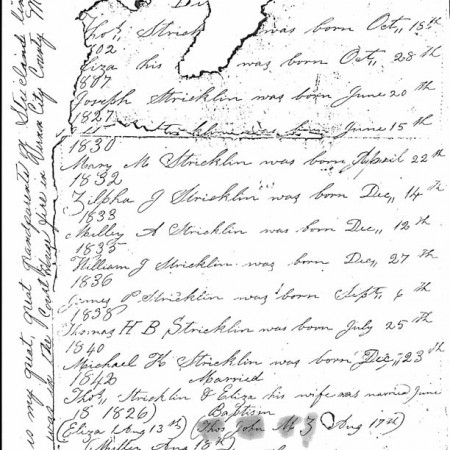 Thos,, Strick was born Oct,, 18th
1802
Eliza his was born Oct,, 28th
1807
Joseph Stricklin was born June 20th
1827
was born June 15th
1830
Mary M Stricklin was born April 22th
1832
Zilpha J Stricklin was born Dec,, 14th
1833
Milley A Stricklin was born Dec,, 12th
1835
William J Stricklin was born Dec,, 27th
1836
James P Stricklin was born Sept,, 6th
1838
Thomas H B Stricklin was born July 25th
1840
Michael H Stricklin was born Dec,, 23th
1842 Married
Thos,, Stricklin & Eliza his wife was June
18 1826) Baptism
(Eliza Aug 13th) (Thos John M Aug 17th)
(Mother Aug 18th)
is my great, great Grandparents of Stricland
was in the City County